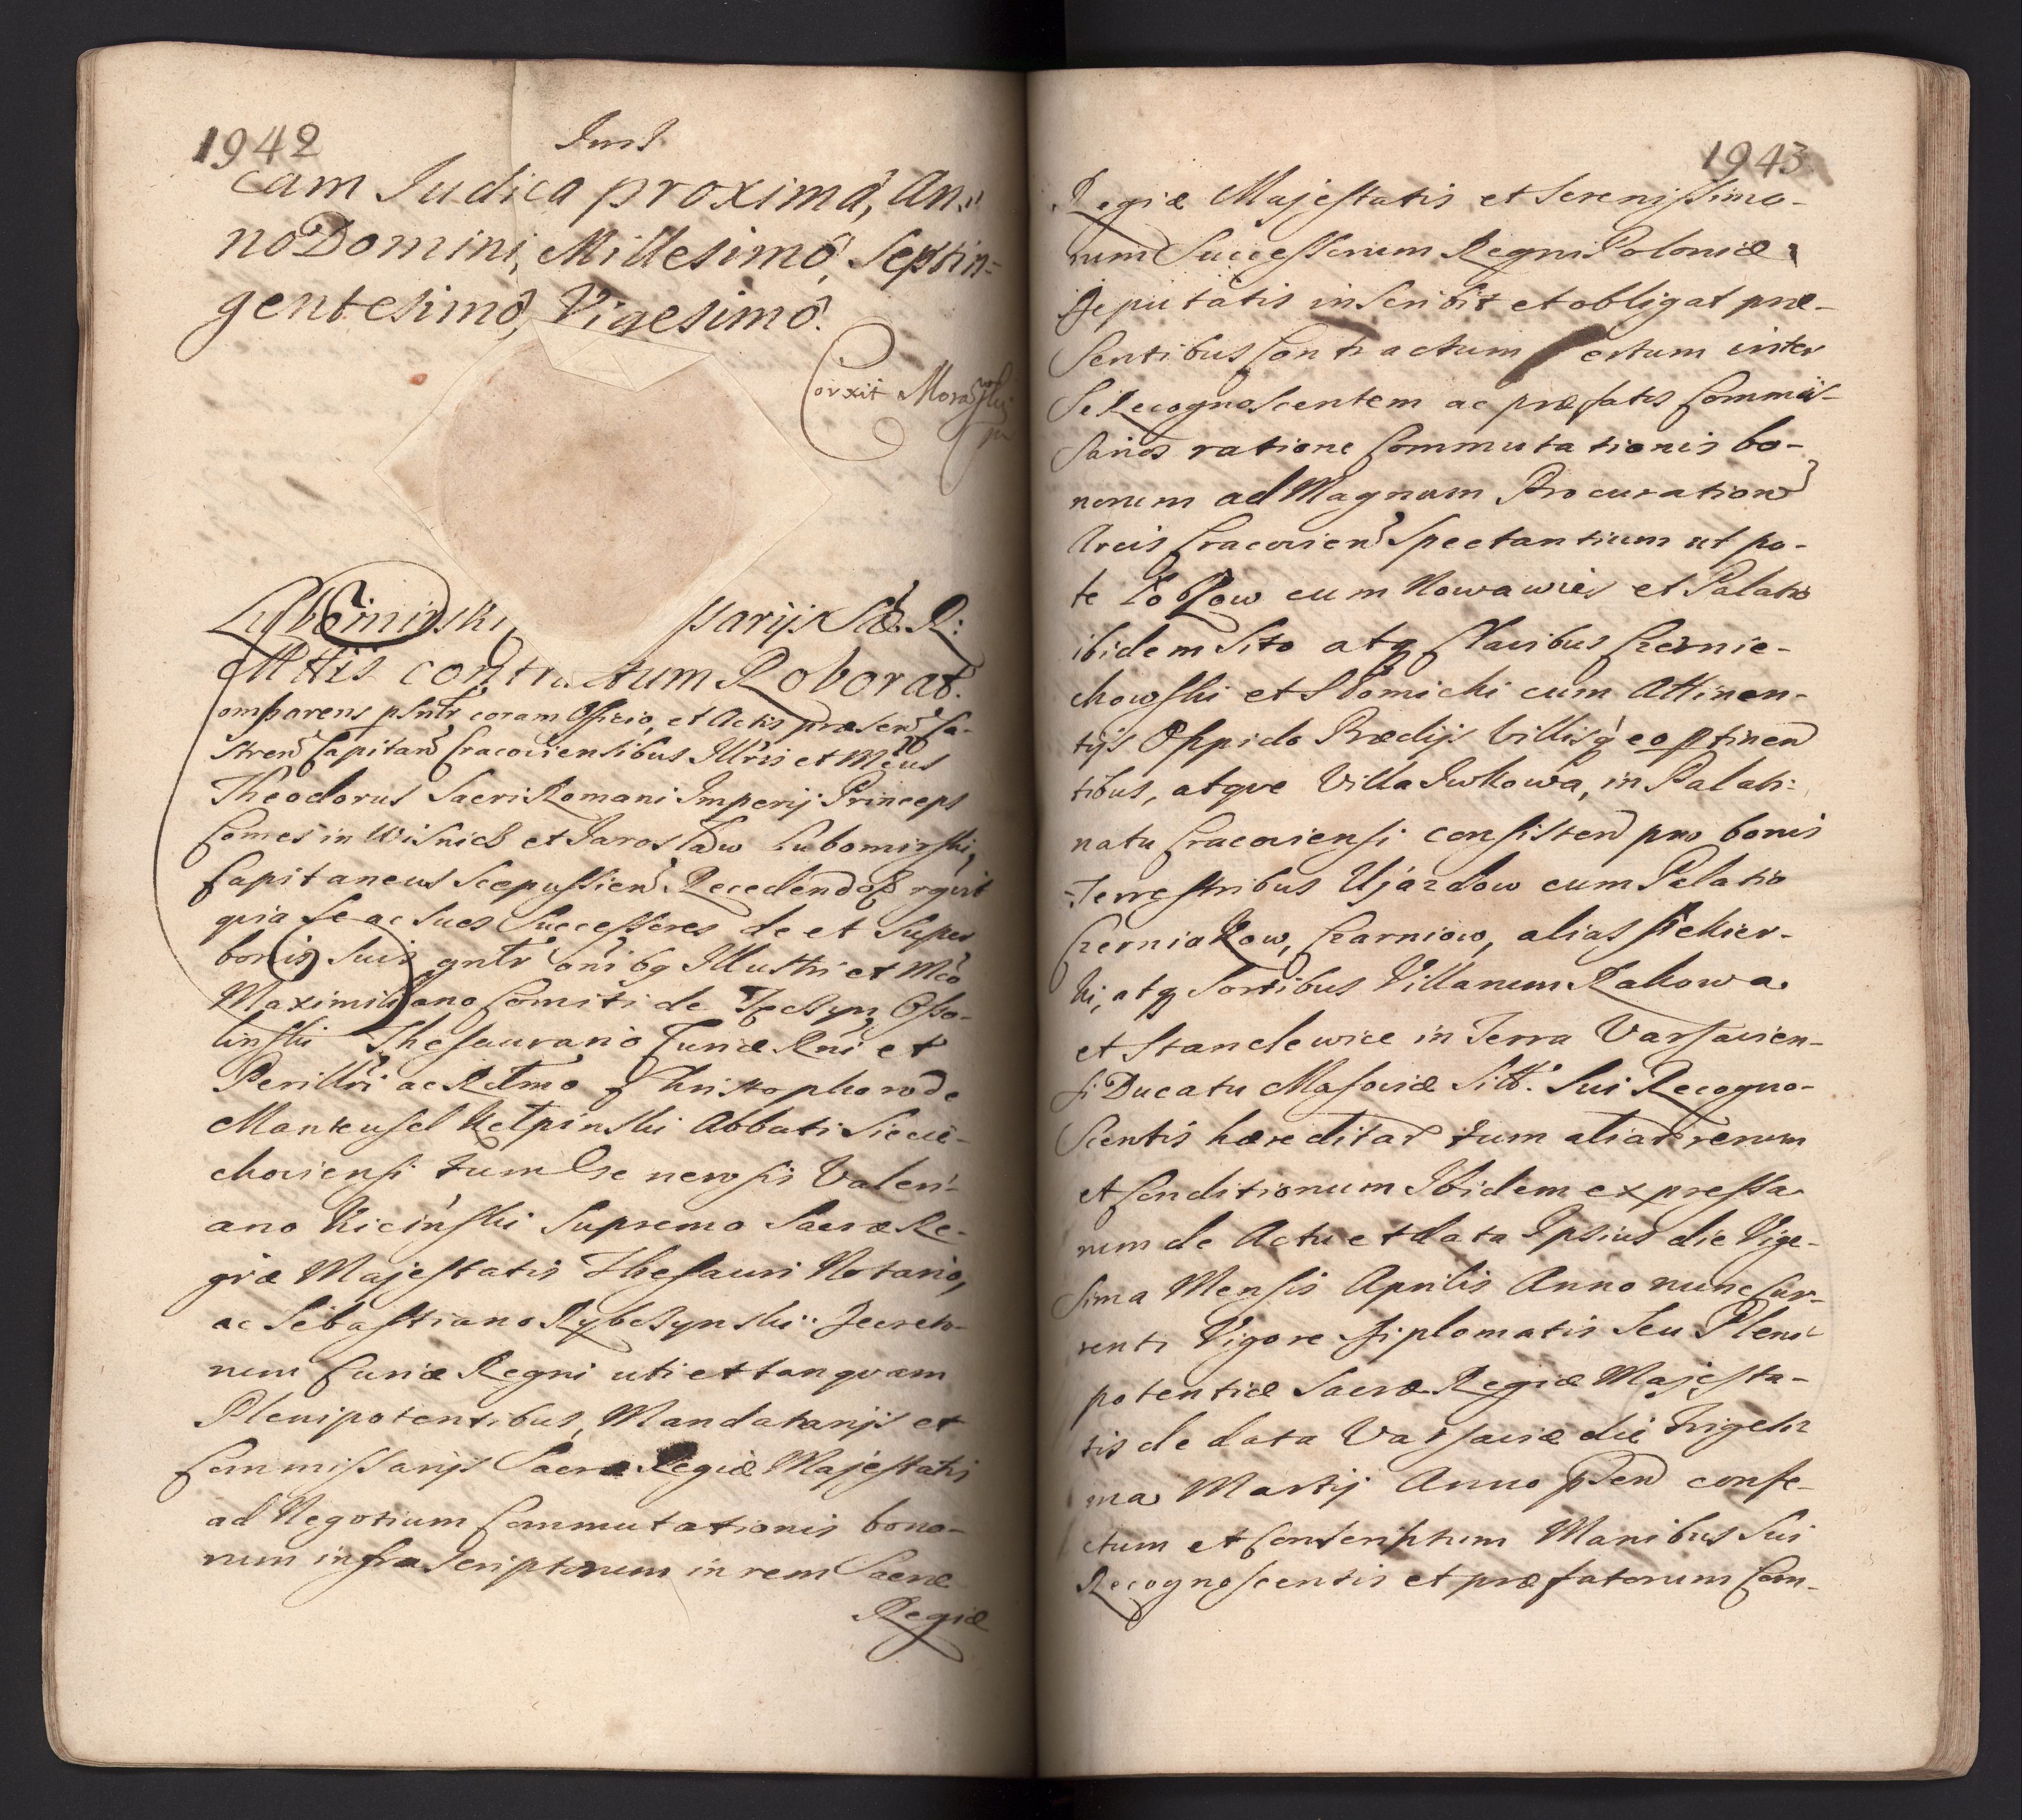 1942
cam Judica proximâ, An-
no Domini, Millesimô, Septin-
gentesimô, Vigesimô.
Corxit
Lubomirski, ssarijs Sæ. R:
Mttis contractum Roborat.
omparens psntr coram Officio, et Actis præsen Ca-
stren Capitan Cracoviensibus Illris et Mcus
Theodorus Sacri Romani Imperij Princeps
Comes in Wisnicz et Jaroslaw Lubomirski,
Capitaneus Scepussien Recedendo &
quia Se ac Suos Successores de et Super
bonis Suis gntr onibq Illustri et Mco
Maximiliano Comiti de Tęczyn Osso-
linski Thesaurario Curiæ Rni et
Perillri ac Rdmo Christophoro de
Manteufel Kielpinski Abbati Siecie-
choviensi tum Generosis Valeri-
ano Kicinski Supremo Sacræ Re-
giæ Majestatis Thesauri Notario,
ac Sebastiano Rybczynski Decreto-
rum Curiæ Regni uti et tanquam
Plenipotentibus, Mandatarijs et
Commissarijs Sacræ Regiæ Majestatis
ad Negotium Commutationis bono-
rum infra Scriptorum in rem Sacræ
Regiæ
1943
Regiæ Majestatis et Serenissimo-
rum Successorum Regni Poloniæ
Deputatis inscribit et obligat præ-
Sentibus Contractum certum inter
Se Recognoscentem ac præfatos Commis-
sarios ratione Commutationis bo-
norum ad Magnam Procuration
Arcis Cracovien Spectantium ut po-
te Łobzow cum Nowawies et Palatio
ibidem Sito atq Clavibus Czernie-
chowski et Słomicki cum Attinen-
tijs Oppido Prædijs Villisq eo ptinen
tibus, atque Villa Iwkowa, in Palati-
natu Cracoviensi consisten pro bonis
Terrestribus Ujazdow cum Palatio
Czerniakow, Czarniow, alias Siekier-
ki, atq Sortibus Villarum Rakowa
et Standewice in Terra Varsavien-
si Ducatu Masoviæ Sitt. Sui Recogno-
Scentis hæreditar tum aliar rerum
et Conditionum Ibidem expressa-
rum de Actu et data Ipsius die Vige-
sima Mensis Aprilis Anno nunc Cur-
renti Vigore Diplomatis Seu Pleni-
potentiæ Sacræ Regiæ Majesta-
tis de data Varsaviæ die Trigesi-
ma Martij Anno psen confe-
ctum et Conscriptum Manibus Sui
Recognoscentis et præfatorum Com-